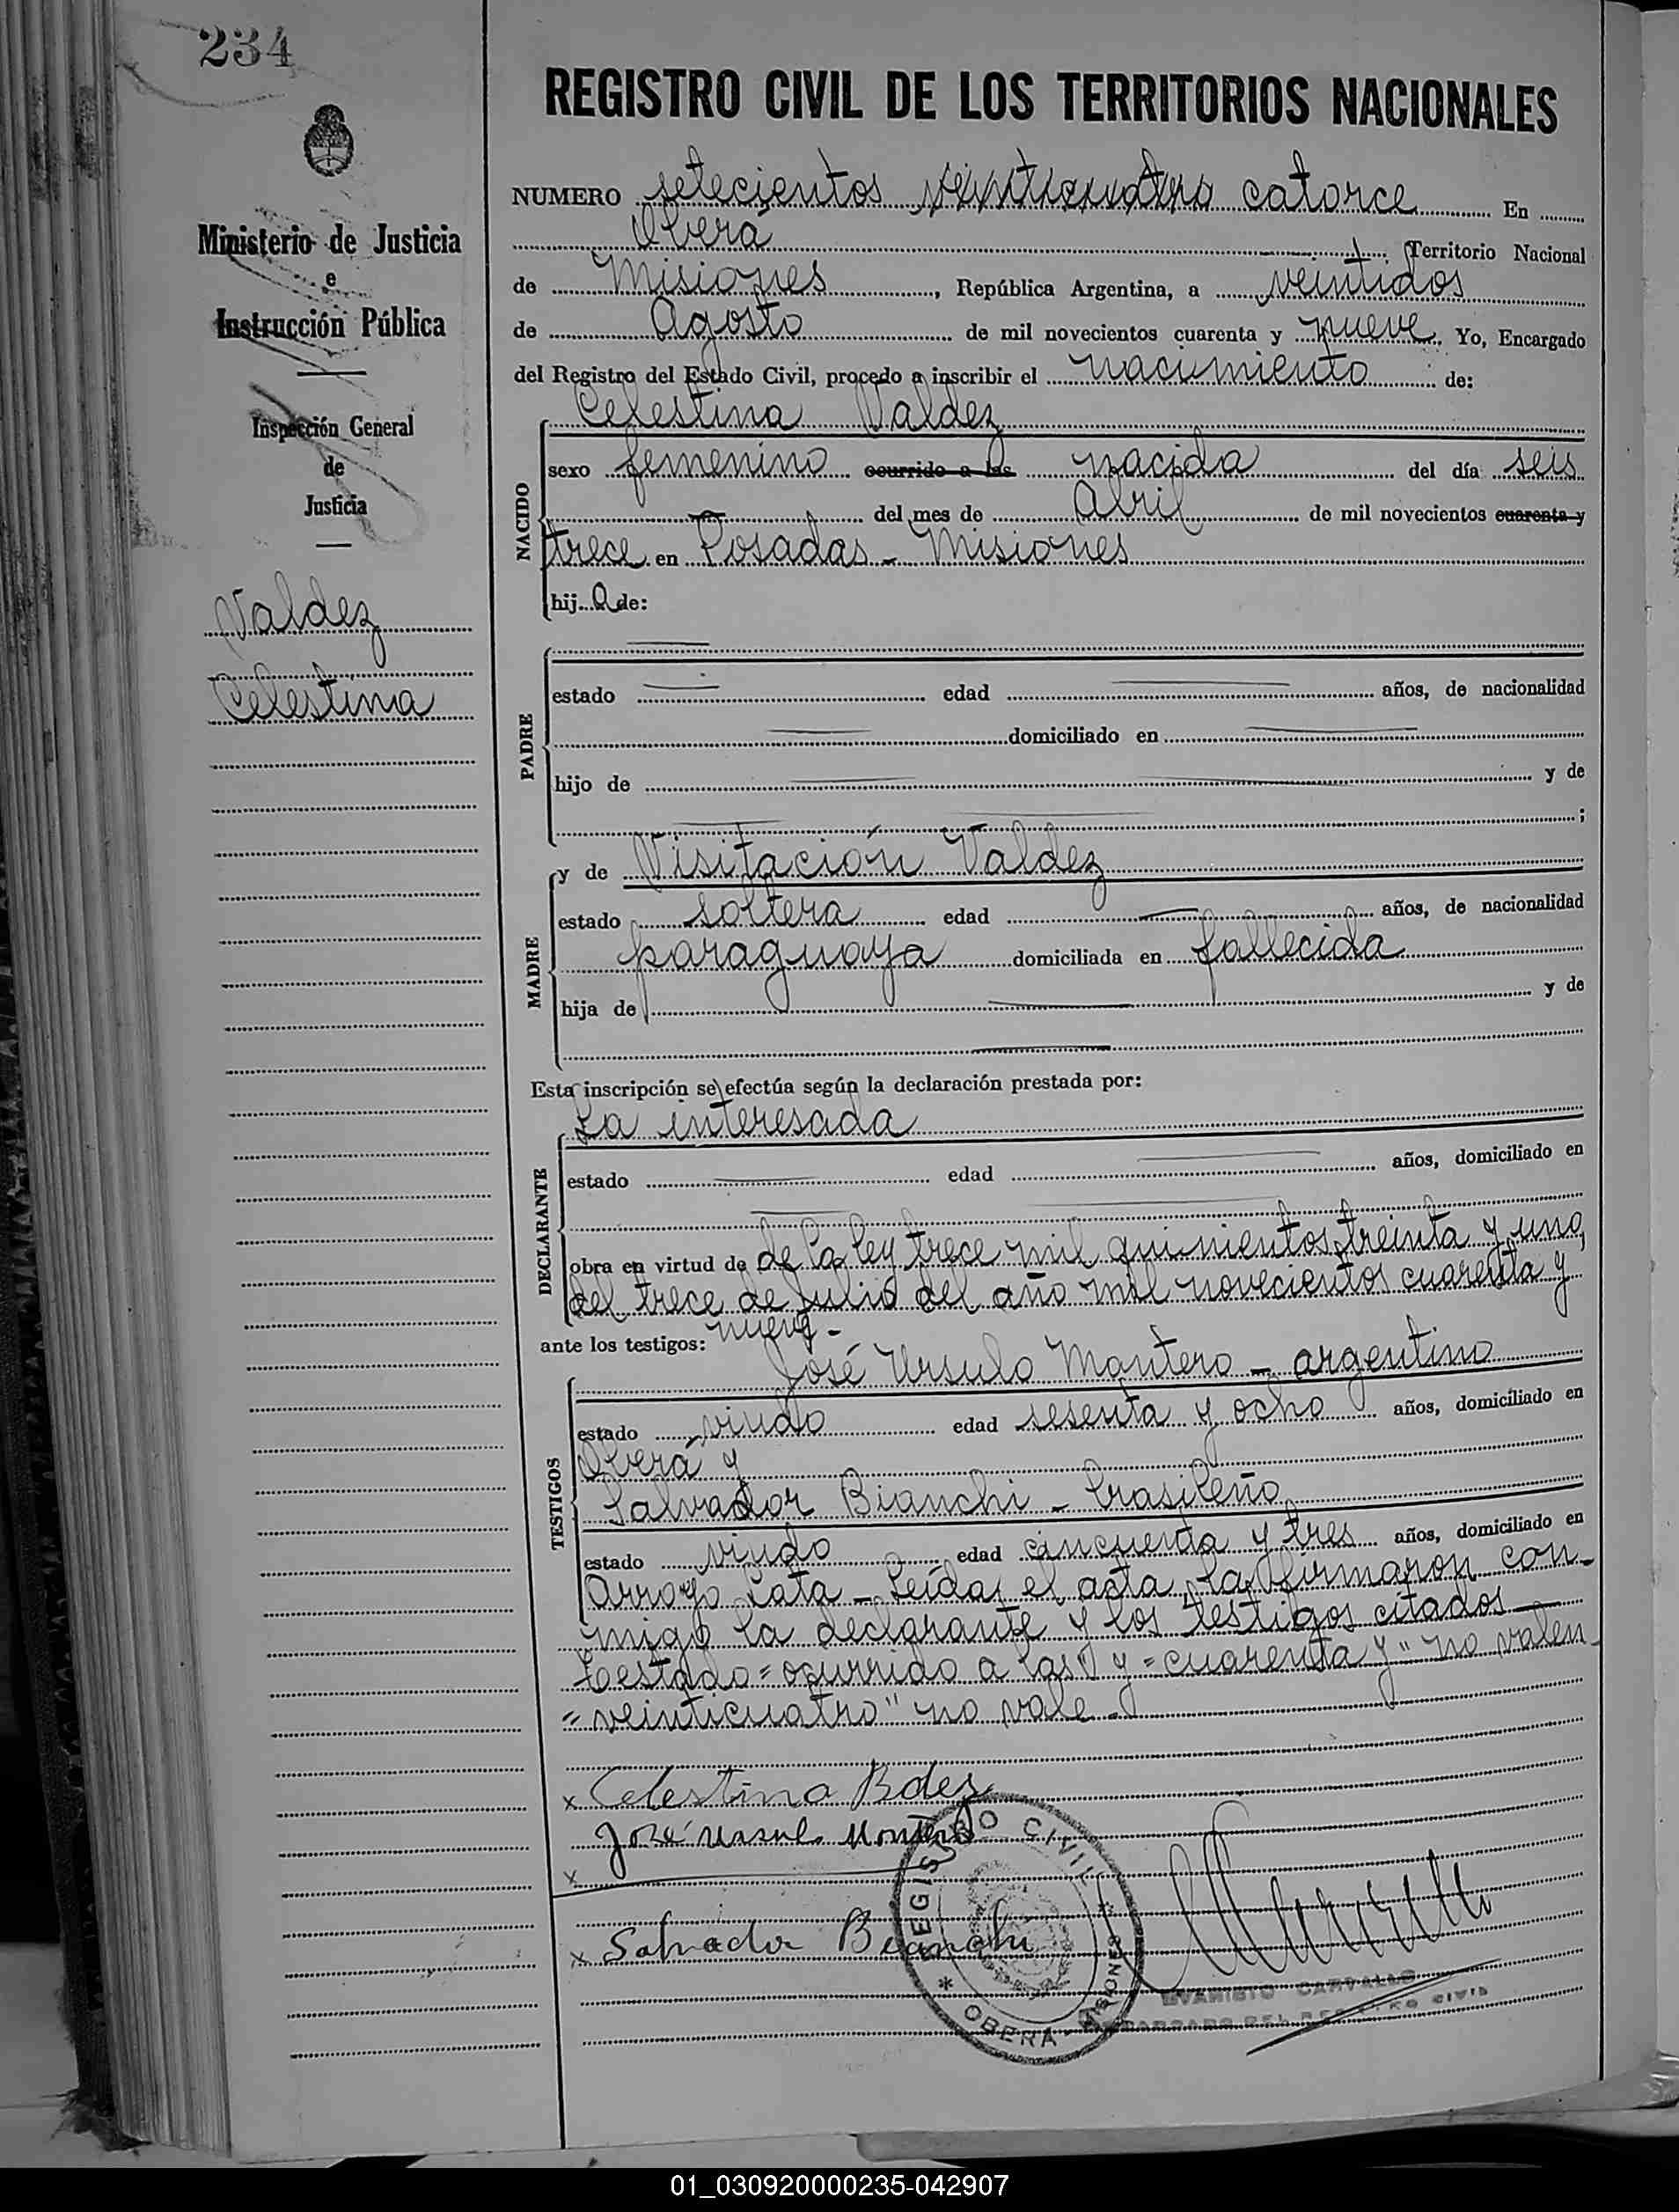 234
Ministerio de Justicia
e
Instrucción Pública
Inspección General
de
Justicia
Valdez
Celestina
REGISTRO CIVIL DE LOS TERRITORIOS NACIONALES
NUMERO setecientos veinticuatro catorce En
Oberá Territorio Nacional
de Misiones, República Argentina, a veintidos
de Agosto de mil novecientos cuarenta y nueve. Yo, Encargado
del Registro del Estado Civil, procedo a inscribir el nacimiento de:
Celestina Valdez
NACIDO
sexo femenino ocurrido a las nacida del día seis
del mes de Abril de mil novecientos cuarenta y
trece en Posadas - Misiones
hija de:
PADRE
estado edad años, de nacionalidad
domiciliado en
hijo de y de
;
y de Visitación Valdez
MADRE
estado soltera edad años, de nacionalidad
paraguaya domiciliada en fallecida
hija de y de
Esta inscripción se efectúa según la declaración prestada por:
La interesada
DECLARANTE
estado edad años, domiciliado en
obra en virtud de de la ley trece mil quinientos treinta y uno,
del trece de Julio del año mil novecientos cuarenta y
ante los testigos: nueve.-
José Ursulo Montero - argentino
TESTIGOS
estado viudo edad sesenta y ocho años, domiciliado en
Oberá y
Salvador Bianchi - brasileño
estado viudo edad cincuenta y tres años, domiciliado en
Arroyo Tata - Leída el acta la firmaron con-
migo la declarante y los testigos citados
testado = ocurrido a las" y = cuarenta y" no valen
= veinticuatro" no vale.-
x Celestina Bdes
José Ursulo Montero
x
x Salvador Bianchi
REGISTRO CIVIL
* OBERA MISIONES *
EVARISTO CARVALLO
ENCARGADO DEL REGISTRO CIVIL
01_030920000235-042907